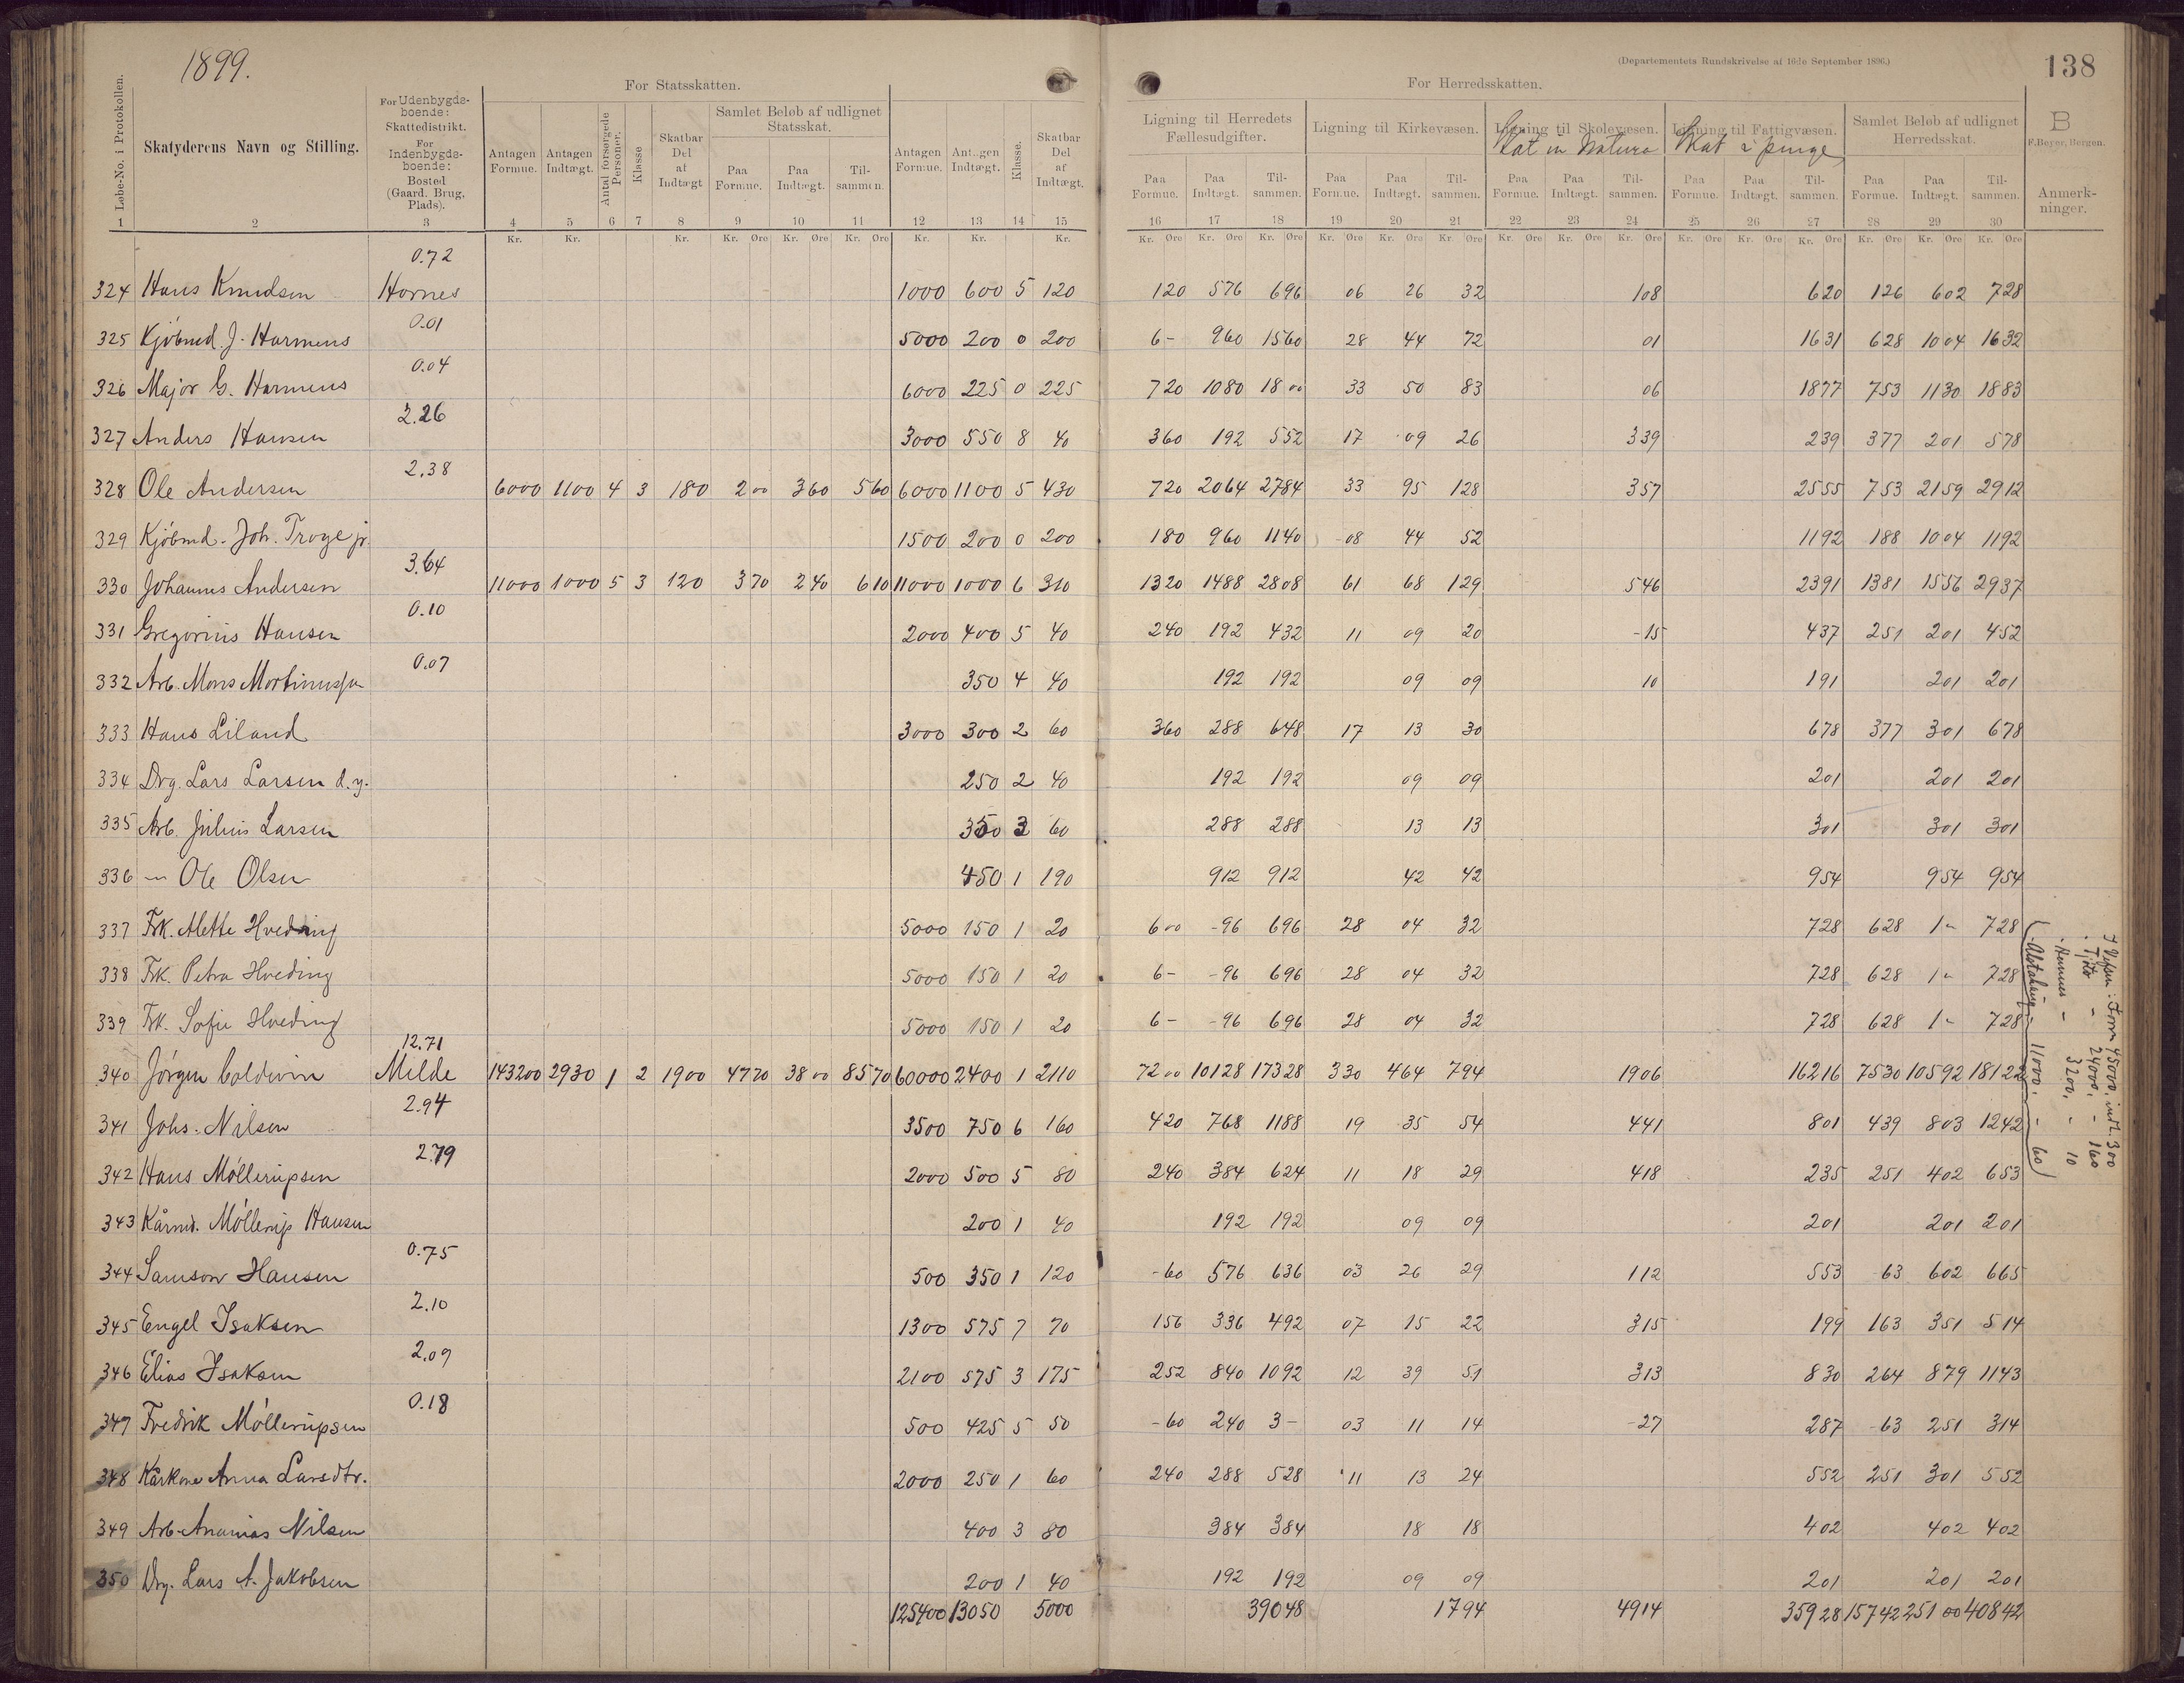 1899.
(Departementets Rundskrivelse af 16de September 1896.)
138
For Statsskatten.
For Herredsskatten.
Løbe-No. i Protokollen.
Skatyderens Navn og Stilling.
For Udenbygdsboende: Skattedistrikt. For Indenbygdsboende: Bosted (Gaard, Brug, Plads).
Antagen Formue.
Antagen Indtægt.
Antal forsørgede Personer.
Klasse
Skatbar Del af Indtægt
Samlet Beløb af udlignet Statsskat.
Paa Formue. Paa Indtægt. Tilsammen.
Antagen Formue.
Antagen Indtægt.
Klasse.
Skatbar Del af Indtægt.
Ligning til Herredets Fællesudgifter.
Paa Formue. Paa Indtægt. Tilsammen.
Ligning til Kirkevæsen.
Paa Formue. Paa Indtægt. Tilsammen.
Ligning til Skolevæsen.
Skat in Natura
Paa Formue. Paa Indtægt. Tilsammen.
Ligning til Fattigvæsen.
Skat i penge
Paa Formue. Paa Indtægt. Tilsammen.
Samlet Beløb af udlignet Herredsskat.
Paa Formue. Paa Indtægt. Tilsammen.
B
F. Beyer, Bergen.
Anmerkninger.
1 2 3 4 5 6 7 8 9 10 11 12 13 14 15 16 17 18 19 20 21 22 23 24 25 26 27 28 29 30
Kr. Kr. Kr. Kr. Øre Kr. Øre Kr. Øre Kr. Kr. Kr. Kr. Øre Kr. Øre Kr. Øre Kr. Øre Kr. Øre Kr. Øre Kr. Øre Kr. Øre Kr. Øre Kr. Øre Kr. Øre Kr. Øre Kr. Øre Kr. Øre Kr. Øre
0.72
324 Hans Knudsen Hornes 1000 600 5 120 120 576 696 06 26 32 108 620 126 602 728
0.01
325 Kjöbmd. J. Harmens 5000 200 0 200 6- 960 1560 28 44 72 01 1631 628 1004 1632
0.04
326 Major G. Harmens 6000 225 0 225 720 1080 18 00 33 50 83 06 1877 753 1130 1883
2.26
327 Anders Hansen 3000 550 8 40 360 192 552 17 09 26 339 239 377 201 578
2.38
328 Ole Andersen 6000 1100 4 3 180 2 00 360 560 6000 1100 5 430 720 2064 2784 33 95 128 357 2555 753 2159 2912
329 Kjöbmd. Joh. Troye jr. 1500 200 0 200 180 960 1140 08 44 52 1192 188 1004 1192
3.64
330 Johannes Andersen 11000 1000 5 3 120 370 240 610 11000 1000 6 310 1320 1488 2808 61 68 129 546 2391 1381 1556 2937
0.10
331 Gregorius Hansen 2000 400 5 40 240 192 432 11 09 20 -15 437 251 201 452
0.07
332 Arb. Mons Mortinussen 350 4 40 192 192 09 09 10 191 201 201
333 Hans Liland 3000 300 2 60 360 288 648 17 13 30 678 377 301 678
334 Drg. Lars Larsen d.y. 250 2 40 192 192 09 09 201 201 201
335 Arb. Julius Larsen 350 3 60 288 288 13 13 301 301 301
336 -"- Ole Olsen 450 1 190 912 912 42 42 954 954 954
337 Frk. Alette Hvedning 5000 150 1 20 6 00 -96 696 28 04 32 728 628 1- 728
338 Frk. Petra Hveding 5000 150 1 20 6- -96 696 28 04 32 728 628 1- 728
339 Frk. Sofie Hveding 5000 150 1 20 6- -96 696 28 04 32 728 628 1- 728
12.71
340 Jörgen Coldevin Milde 143200 2930 1 2 1900 4770 38 00 8570 60000 2400 1 2110 72 00 10128 17328 330 464 794 1906 16216 7530 10592 18122
2.94
341 Johs. Nilsen 3500 750 6 160 420 768 1188 19 35 54 441 801 439 803 1242
2.79
342 Hans Möllerupsen 2000 500 5 80 240 384 624 11 18 29 418 235 251 402 653
343 Kårmd. Möllerup Hansen 200 1 40 192 192 09 09 201 201 201
0.75
344 Samson Hansen 500 350 1 120 -60 576 636 03 26 29 112 553 -63 602 665
2.10
345 Engel Isaksen 1300 575 7 70 156 336 492 07 15 22 315 199 163 351 514
2.09
346 Elias Isaksen 2100 575 3 175 252 840 1092 12 39 51 313 830 264 879 1143
0.18
347 Fredrik Möllerupsen 500 425 5 50 -60 240 3- 03 11 14 -27 287 -63 251 314
348 Kårkone Anna Larsdtr. 2000 250 1 60 240 288 528 11 13 24 552 251 301 552
349 Arb. Ananias Nilsen 400 3 80 384 384 18 18 402 402 402
350 Drg. Lars A. Jakobsen 200 1 40 192 192 09 09 201 201 201
125400 13050 5000 39048 1794 4914 359 28 15742 251 00 40842
Form 45000, indt. 300
- Tjötö - 24000, - 160
3200, - 10
- Alstahaug - 11000, - 60)